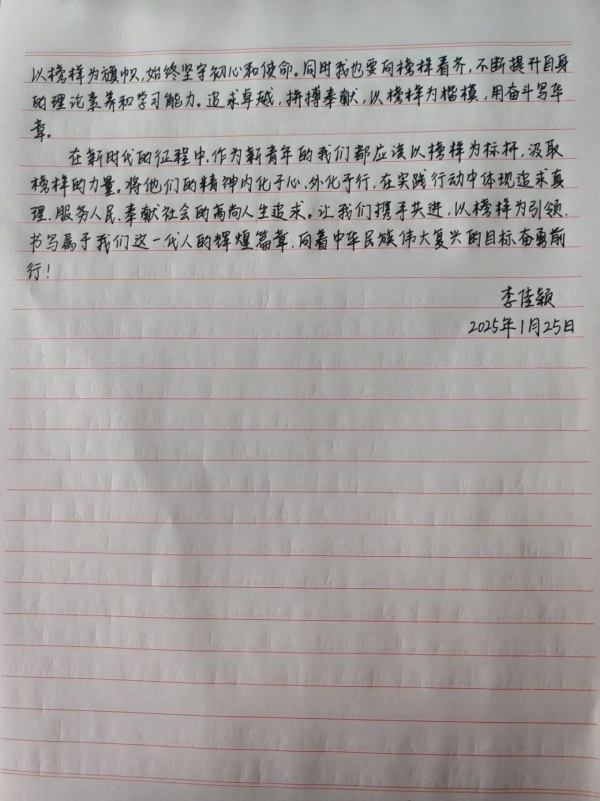 以榜样为旗帜,始终坚守初心和使命。同时我也要向榜样看齐,不断提升自身
的理论素养和学习能力。追求卓越,拼搏奉献,以榜样为楷模,用奋斗写华
章。
在新时代的征程中,作为新青年的我们都应该以榜样为标杆,汲取
榜样的力量。将他们的精神内化于心、外化于行,在实践行动中体现追求真
理、服务人民、奉献社会的高尚人生追求。让我们携手共进,以榜样为引领,
书写属于我们这一代人的辉煌篇章,向着中华民族伟大复兴的目标奋勇前
行!
李佳颖
2025年1月25日